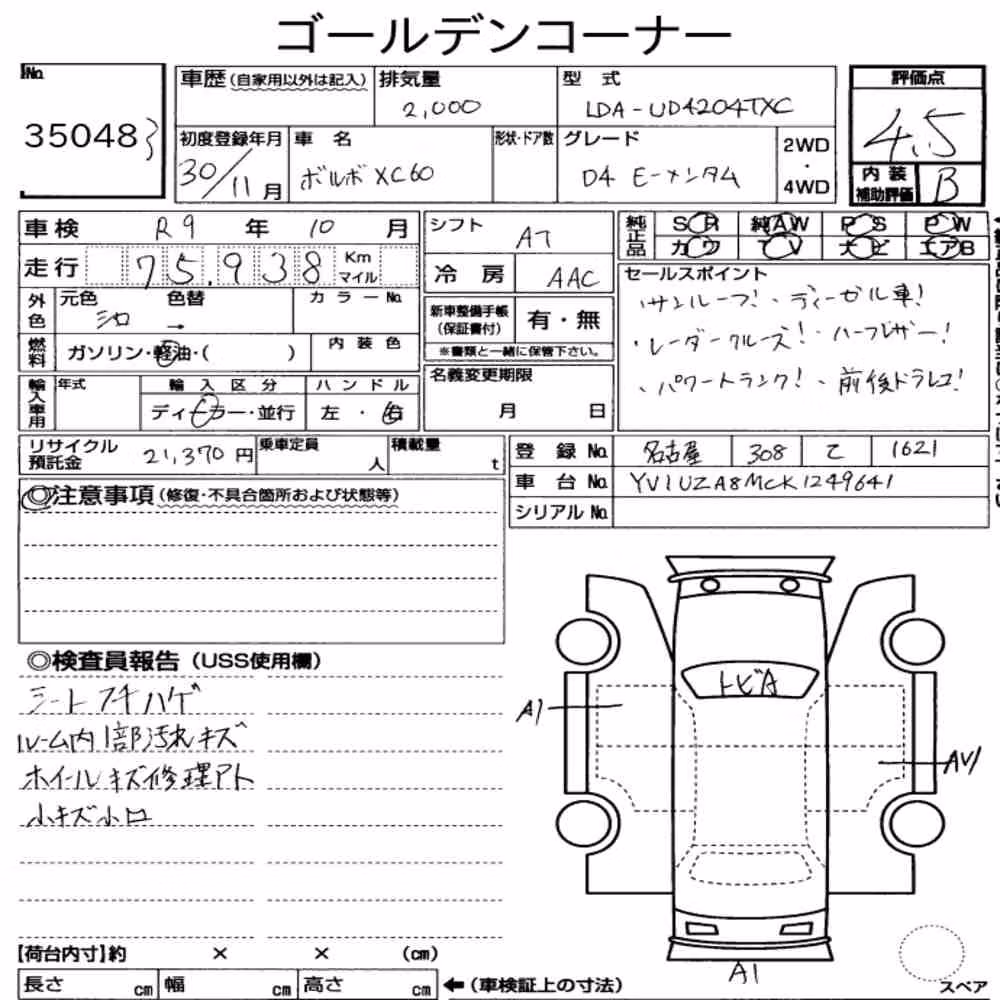 ゴールデンコーナー
No.
35048
車歴(自家用以外は記入)
排気量
2,000
型 式
LDA-UD4204TXC
評価点
4.5
初度登録年月
30/11月
車 名
ボルボXC60
形状・ドア数
グレード
D4 モーメンタム
2WD
・
4WD
内 装
補助評価
B
車検 R9 年 10 月
走行 75,938 Km
マイル
シフト AT
冷 房 AAC
純正品
SR 純AW PS PW
カワ TV ナビ エアB
外色
元色 色替
シロ →
カラーNo.
新車整備手帳
(保証書付)
有・無
※書類と一緒に保管下さい。
セールスポイント
・サンルーフ!・ディーゼル車!
・レーダークルーズ!・ハーフレザー!
・パワートランク!・前後ドラレコ!
燃料
ガソリン・軽油・( )
内 装 色
輸入車用
年式
輸 入 区 分
ディーラー・並行
ハ ン ド ル
左 ・ 右
名義変更期限
月 日
リサイクル
預託金
21,370円
乗車定員
人
積載量
t
登 録 No. 名古屋 308 て 1621
車 台 No. YV1UZA8MCK1249641
シリアルNo.
◎注意事項(修復・不具合箇所および状態等)
◎検査員報告(USS使用欄)
シートフチハゲ
ルーム内1部汚れキズ
ホイールキズ修理アト
小キズ小凹
トビA
A1
AV1
A1
【荷台内寸】約 × × (cm)
長さ cm 幅 cm 高さ cm
←(車検証上の寸法)
スペア